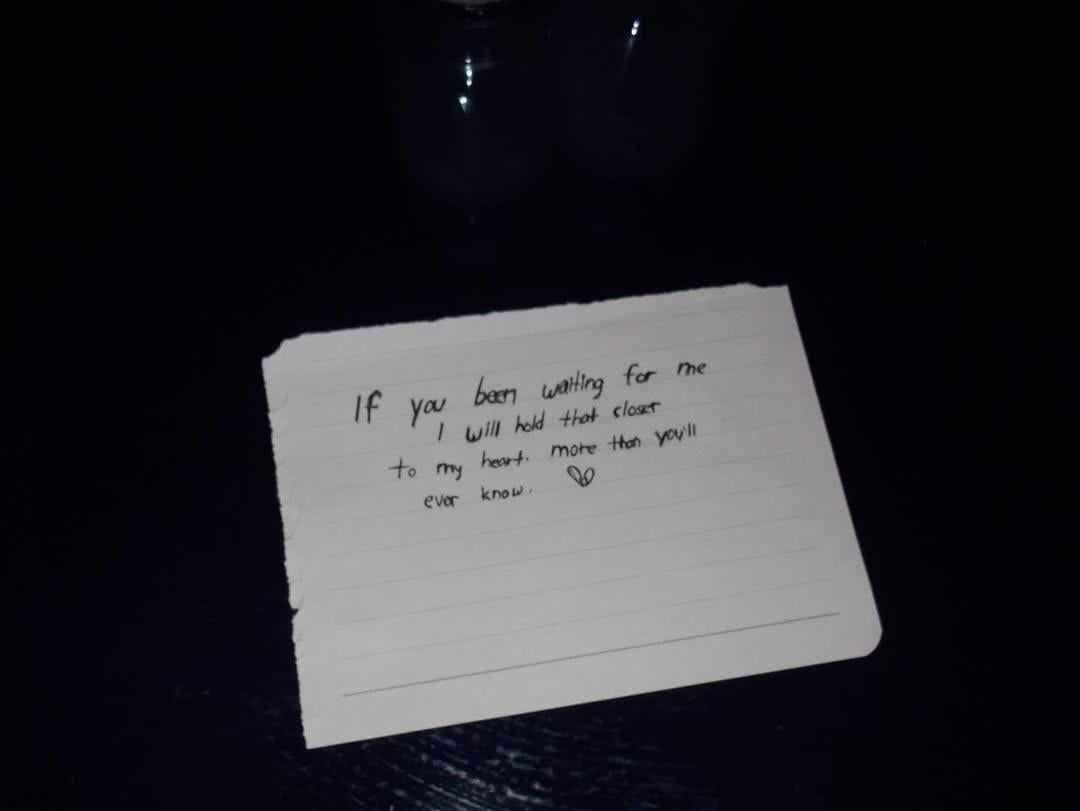 If you been waiting for me
I will hold that closer
to my heart. more than you'll
ever know.